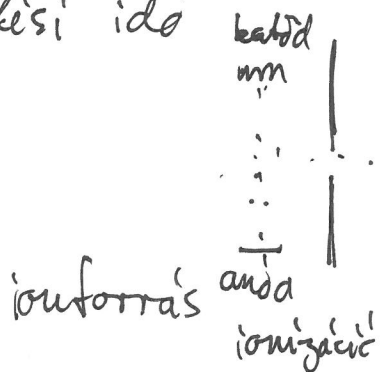 ési idő
katód
ionforrás
anód
ionizáció